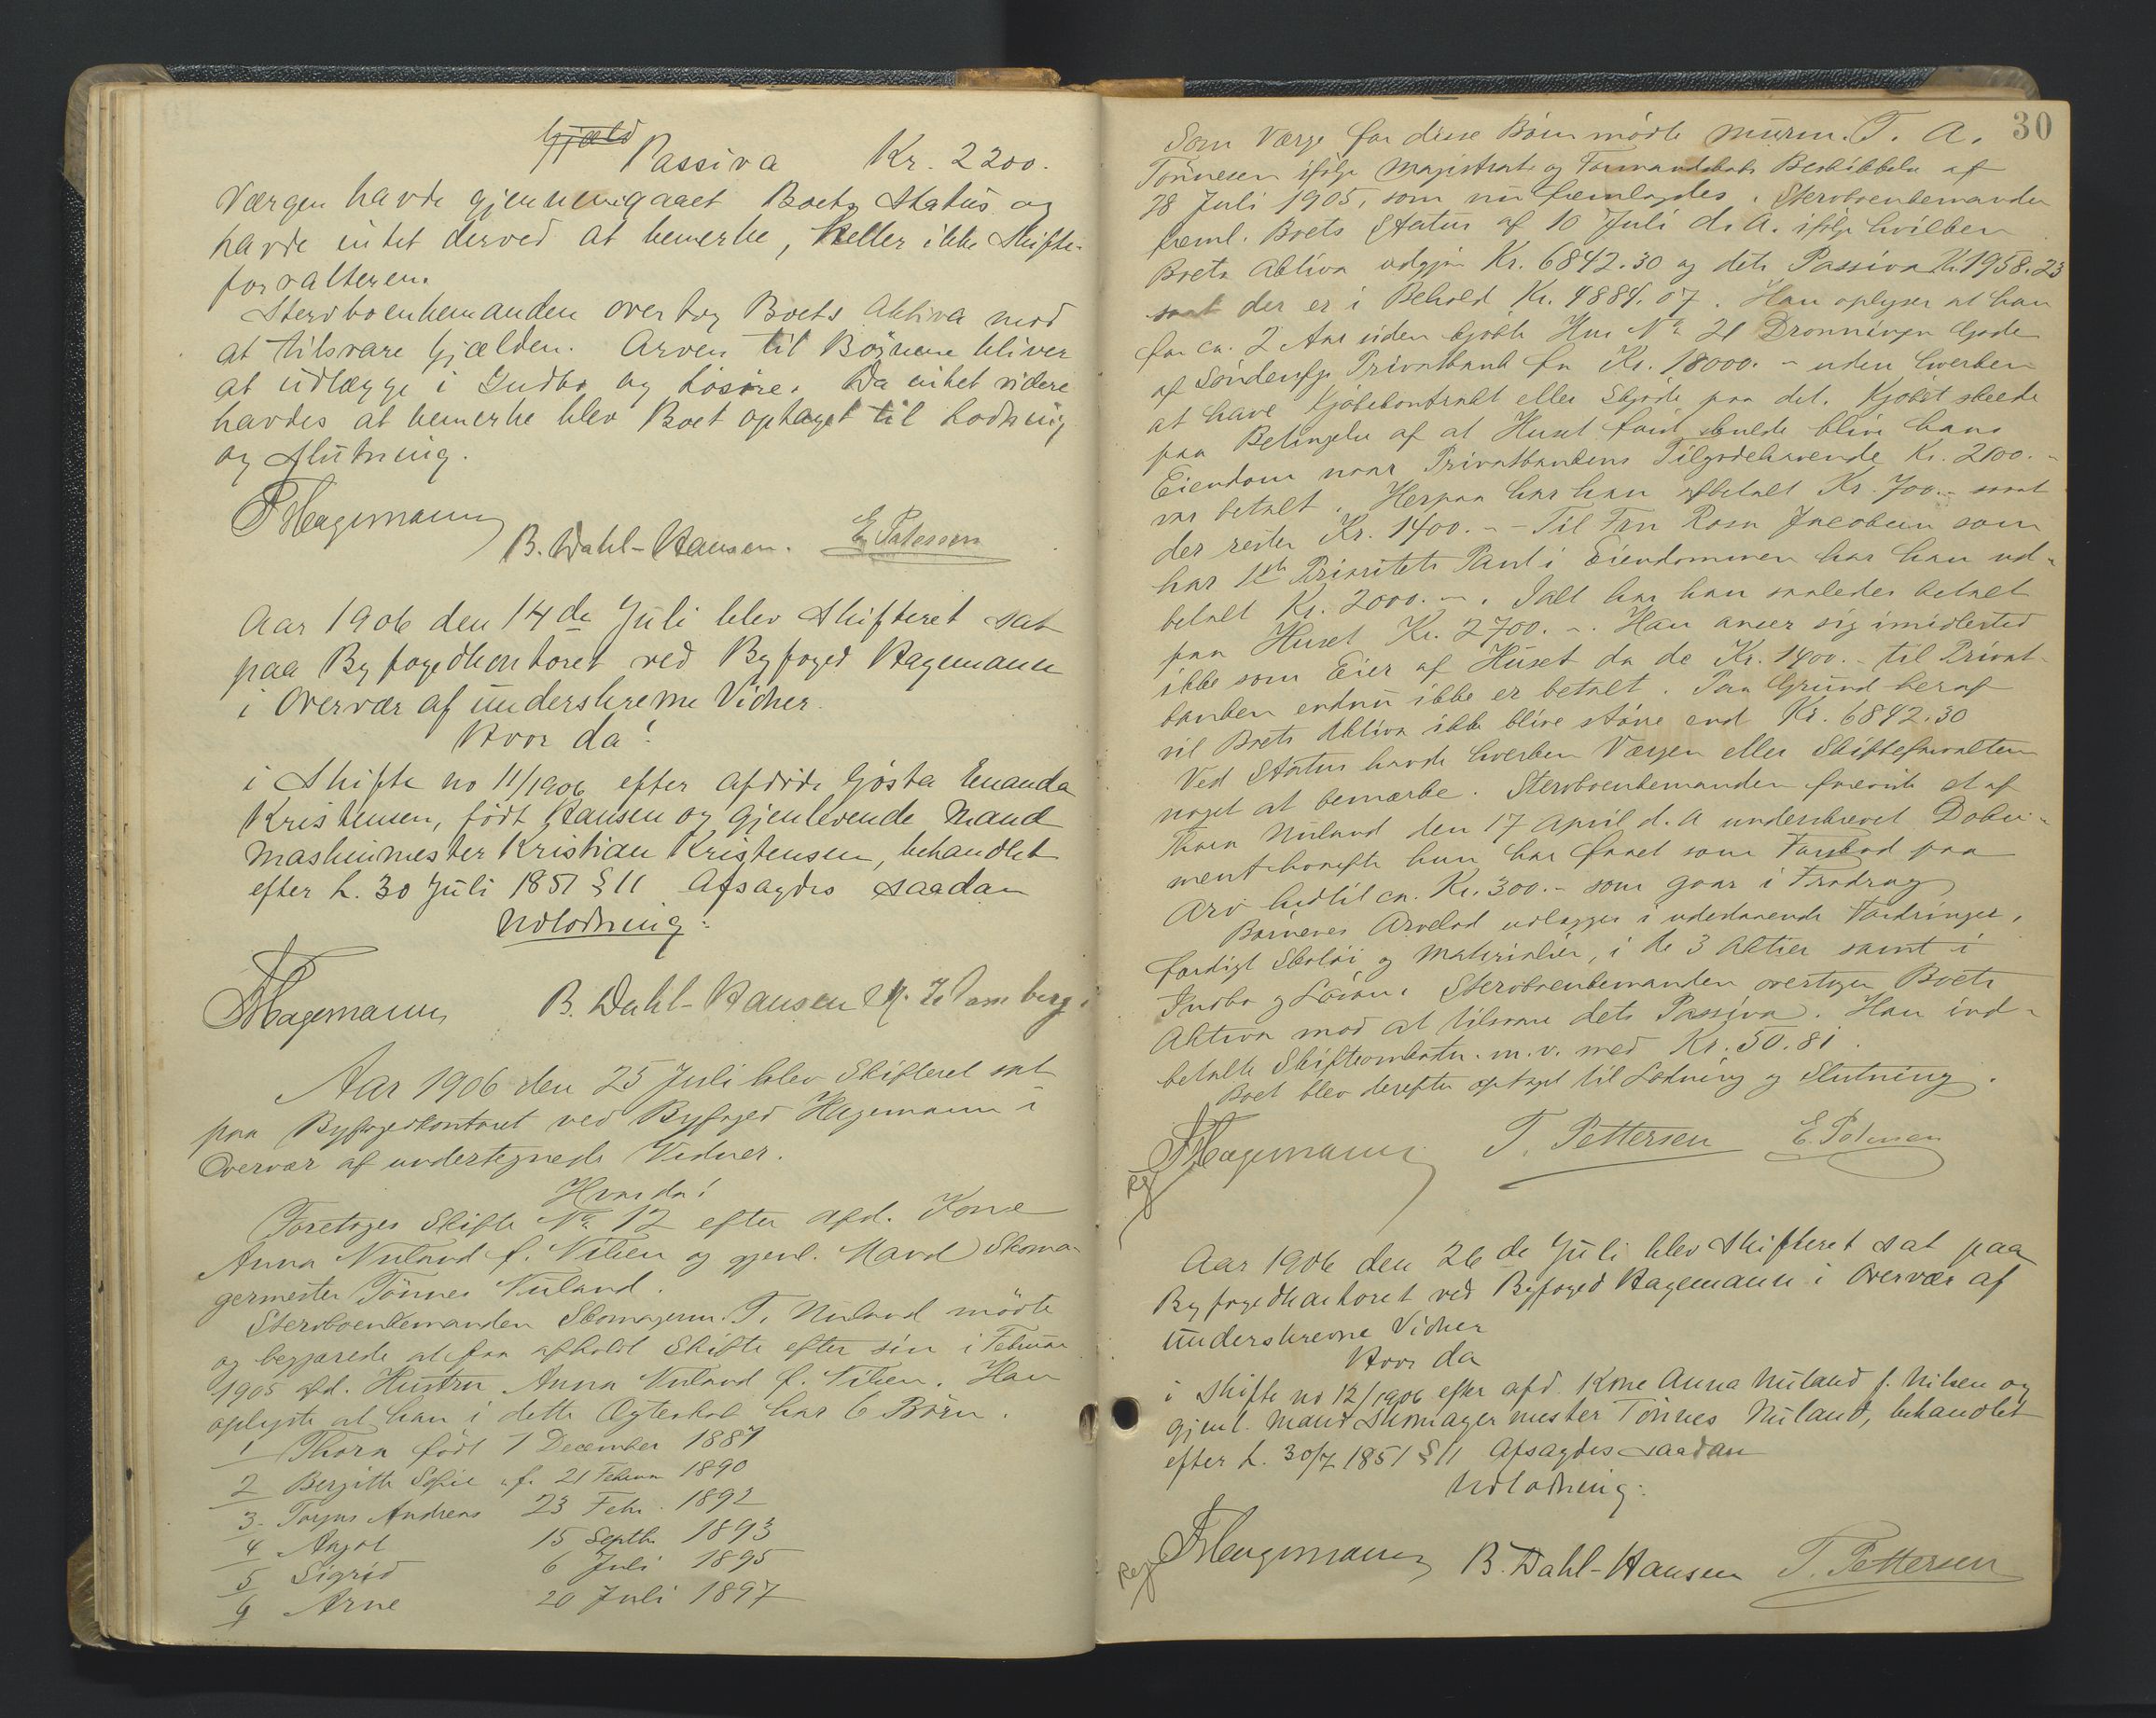 Gjæld
Passiva Kr. 2200.
Værgen havde gjennemgaaet Boets Status og
havde intet derved at bemerke, heller ikke Skifte-
forvalteren.
Stervboenkemanden overtog Boets Aktiva mod
at tilsvare Gjælden. Arven til Børnene bliver
at udlægge i Indbo og Løsøre. Da intet videre
havdes at bemerke blev Boet optaget til Lodning
og Slutning.
Hagemann
B. Dahl-Hansen. E. Petersen
Aar 1906 den 14de Juli blev Skifteret sat
paa Byfogedkontoret ved Byfoged Hagemann
i Overvær af underskrevne Vidner.
Hvor da!
i Skifte no 11/1906 efter afdøde Gjøsta Emanda
Kristensen, født Hansen og gjenlevende Mand
Maskinmester Kristian Kristensen, behandlet
efter L. 30 Juli 1851 § 11 Afsagdes saadan
Udlodning:
Hagemann B. Dahl-Hansen
Aar 1906 den 25 Juli blev Skifteret sat
paa Byfogedkontoret ved Byfoged Hagemann i
Overvær af undertegnede Vidner.
Hvor da!
Foretoges Skifte No. 12 efter afd. Kone
Anna Nuland f. Nilsen og gjenl. Mand Skoma-
germester Tönnes Nuland.
Stervboenkemanden Skomagerm. T. Nuland mödte
og begjærede at faa afholdt Skifte efter sin i Februar
1905 afd. Hustru Anna Nuland f. Nilsen. Han
oplyste at han i dette Ægteskab har 6 Börn.
1 Thora født 1 December 1887
2 Bergitte Sofie f. 21 Februar 1890
3 Andreas 23 Febr. 1892
4 15 Septbr 1893
5 Sigrid 6 Juli 1895
6 Arne 20 Juli 1897
30
Som Værge for disse Börn mödte Murm. T. A.
Tönnesen ifölge Magistrats og Formandskabs Beskikkelse af
28 Juli 1905, som nu fremlagdes. Stervboenkemanden
freml. Boets Status af 10 Juli d. A. ifölge hvilken
Boets Aktiva udgjör Kr. 6842.30 og dets Passiva Kr. 1958.23
saat der er i Behold Kr. 4884.07. Han oplyser at han
for ca. 2 Aar siden kjöbte Hus No 21 Dronningens Gade
af Söndenfjs Privatbank for Kr. 18000.- uden hverken
at have Kjöbekontrakt eller Skjöde paa det. Kjöbet skeede
paa Betingelse af at Huset först skulde blive hans
Eiendom naar Privatbankens Tilgodehavende Kr. 2100.-
var betalt. Herpaa har han afbetalt Kr. 700.- saat
der rester Kr. 1400.- - Til Fru Rosa Jacobsen som
har 1ste Prioritets Pant i Eiendommen har han ud-
betalt Kr. 2000.-. Ialt har han saaledes betalt
paa Huset Kr. 2700.-. Han anser sig imidlertid
ikke som Eier af Huset da de Kr. 1400.- til Privat-
banken endnu ikke er betalt. Paa Grund heraf
vil Boets Aktiva ikke blive större end Kr. 6842.30
Ved Status havde hverken Værgen eller Skifteforvalteren
noget at bemærke. Stervboenkemanden foreviste et af
Thora Nuland den 17 April d. A underskrevet Doku-
ment hvorefter hun har faaet som Forskud paa
Arv hidtil ca. Kr. 300.- som gaar i Fradrag
Börnenes Arvelod udlægges i udestaaende Fordringer,
færdigt Skotöi og Materialier, i de 3 Aktier samt i
Indbo og Lösöre. Stervboenkemanden overtager Boets
Aktiva mod at tilsvare dets Passiva. Han ind-
betalte Skifteomkostn. m. v. med Kr. 50.81.
Boet blev derefter optaget til Lodning og Slutning.
Reg Hagemann T. Pettersen E. Petersen
Aar 1906 den 26de Juli blev Skifteret sat paa
Byfogedkontoret ved Byfoged Hagemann i Overvær af
underskrevne Vidner
Hvor da
i Skifte no 12/1906 efter afd. Kone Anna Nuland f. Nilsen og
gjenl. Mand Skomagermester Tönnes Nuland, behandlet
efter L. 30/7 1851 § 11 Afsagdes saadan
Udlodning:
Reg Hagemann B. Dahl-Hansen T. Pettersen